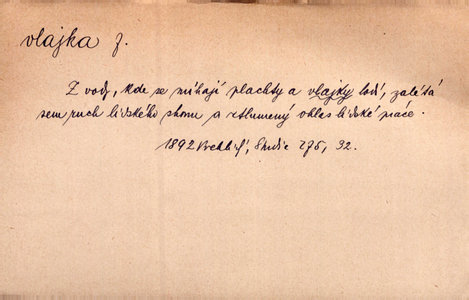 vlajka f.
Z vody, kde se míhají plachty a vlajky lodí, zalétá
sem ruch lidského shonu a ztlumený ohlas lidské práce.
1892 Vrchlický, Studie 275, 32.